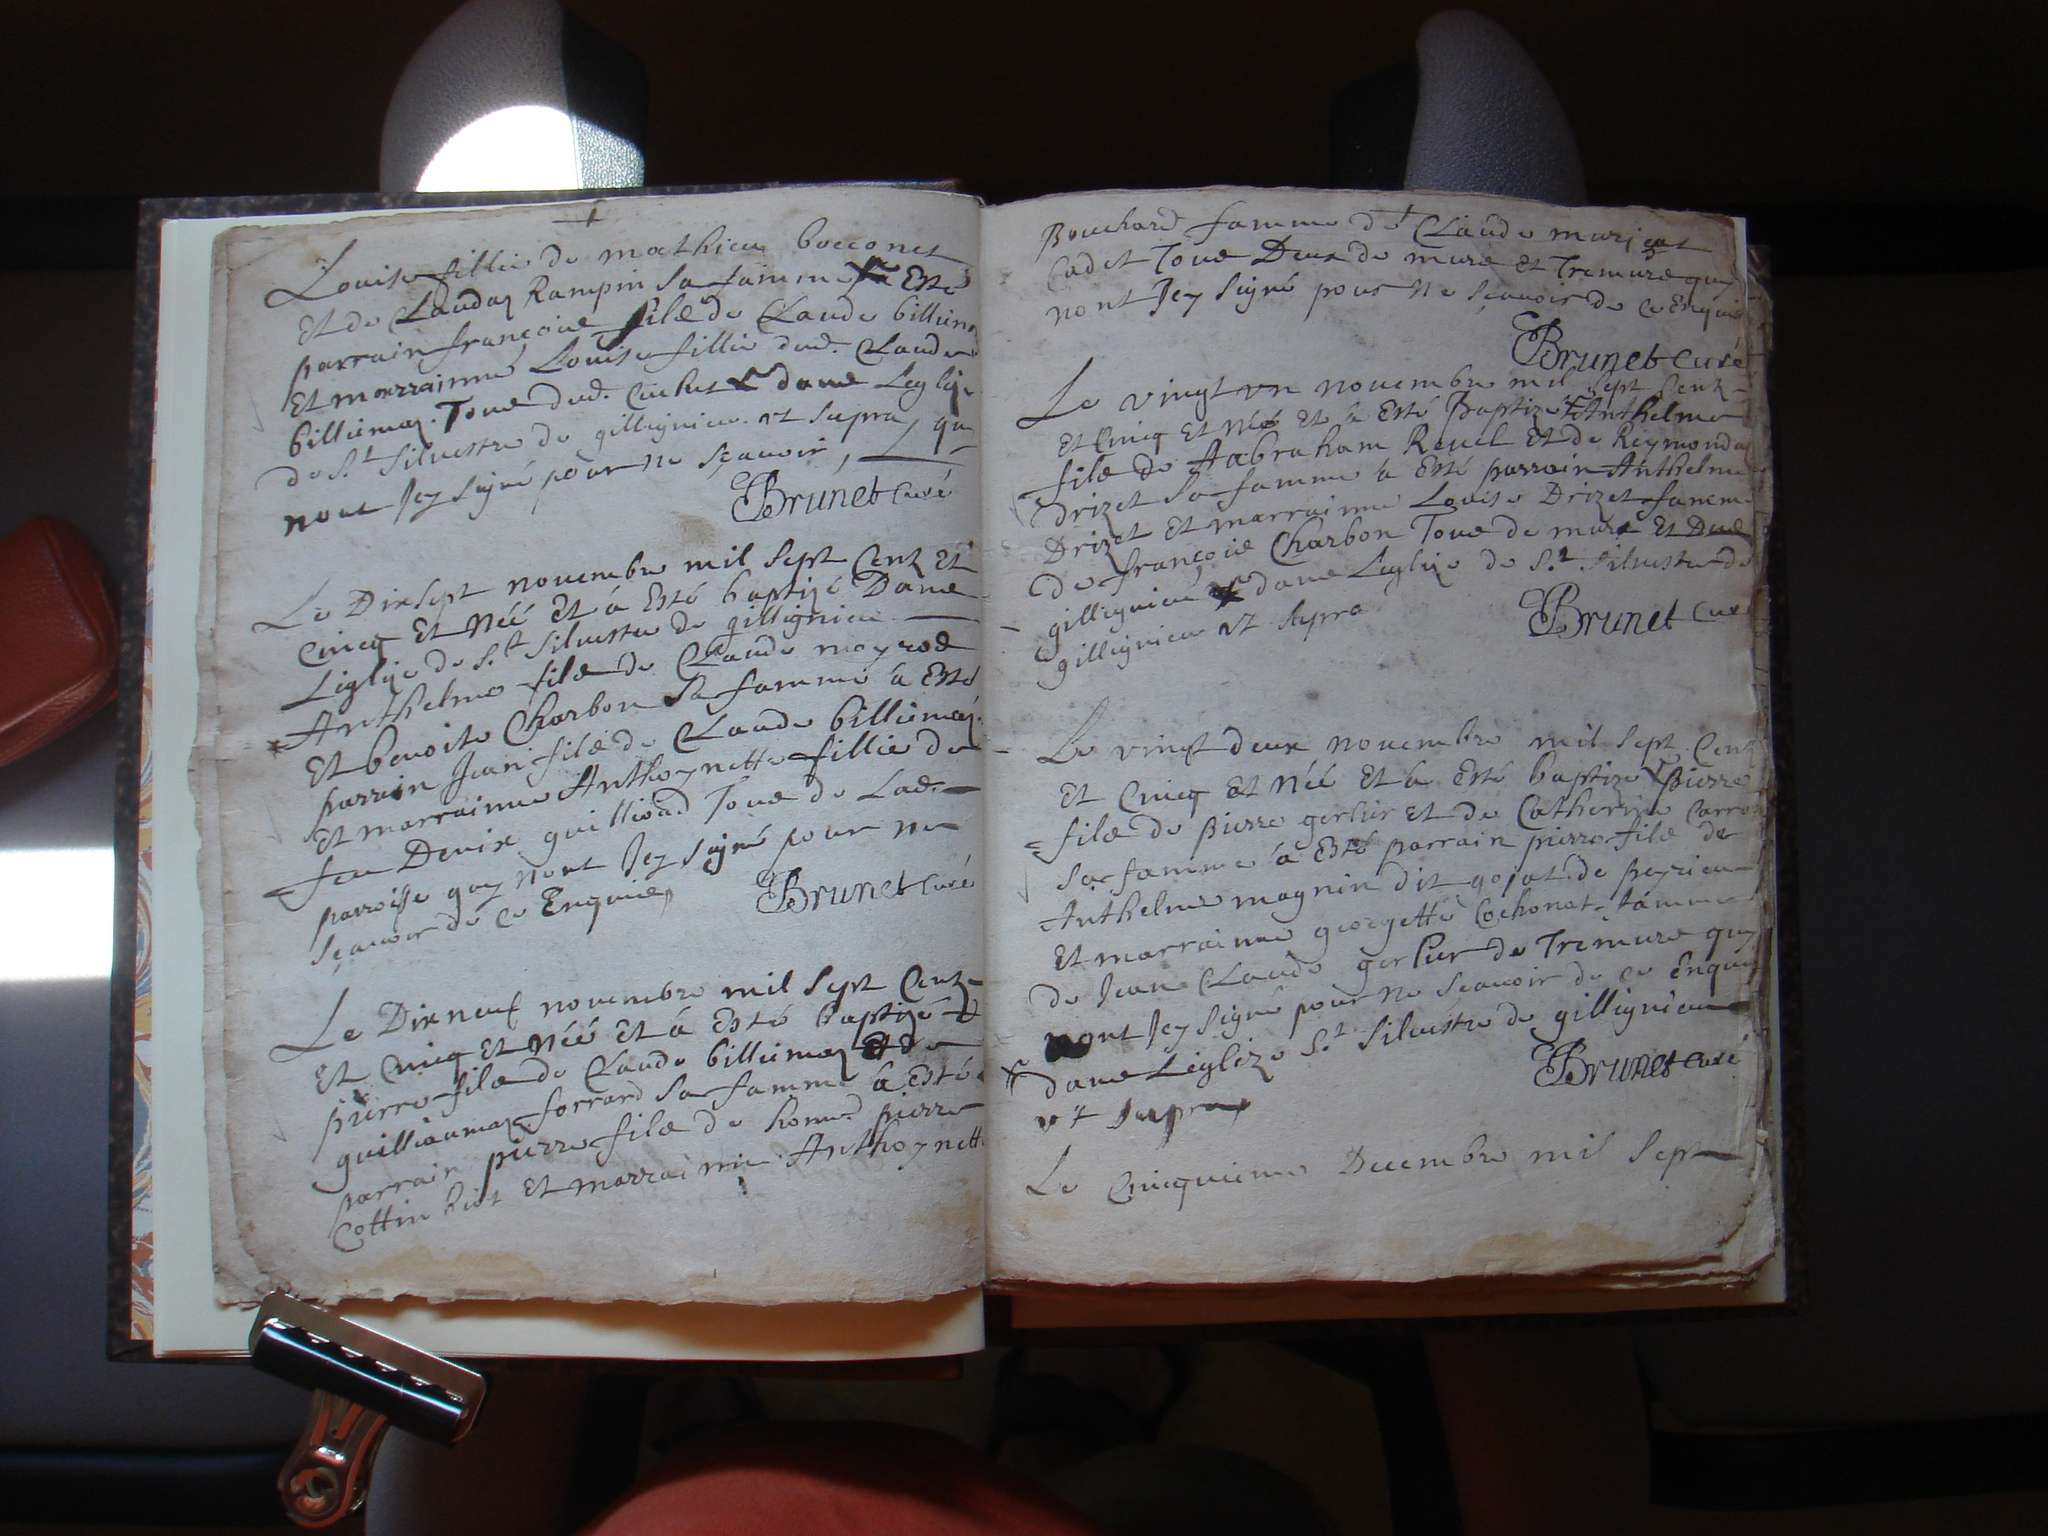 Louise fillie de mathieu bocconet
Et de Clauda Rampin Sa famme a Esté
parrain françois filz de Claude billiema
Et marrainne Louise fillie dud. Claude
billiemaz. Tous dud. Cuchet dans Leglize
de St Siluestre de gillignieu vt supra quy
nont Jcy signé pour ne sçauoir
Brunet Curé
Le Dixsept nouembre mil sept Centz Et
Cincq Et Néé Et à Esté baptizé Dans
Leglize de St Siluestre de gillignieu
Anthelme filz de Claude mayrod
Et benoite Charbon Sa famme à Esté
parrain Jean filz de Claude billiemaz
Et marrainne Anthoynette fillie de
feu Denix guilliod Tous de Lad.
parroisse quy nont Jcy signé pour ne
sçauoir de ce Enquis
Brunet Curé
Le Dixneuf nouembre mil sept Centz
Et Cincq Et Néé Et à Esté baptizé
pierre filz de Claude billiemaz Et de
guilliaumaz forrard Sa famme à Esté
parrain pierre filz de hono. pierre
Cottin biot Et marrainne Anthoynette
Bouchard famme de Claude
Cadet Tous Deux de mure Et Tremure quy
nont Jcy signé pour ne sçauoir de ce Enquis
Brunet Curé
Le vingt vn nouembre mil sept Centz
Et Cincq Et Néé Et à Esté Baptizé Anthelme
filz de Aabraham Reuel Et de Reymonda
Drizet Sa famme à Esté parrain Anthelme
Drizet Et marrainne Louise Drizet famme
de françois Charbon Tous de mure Et Dud
gillignieu dans Leglize de St. Siluestre de
gillignieu vt supra
Brunet Curé
Le vingt deux nouembre mil sept Centz
Et Cincq Et Néé Et à Esté baptizé pierre
filz de pierre gerlier Et de Catherine Carron
Sa famme à Esté parrain pierre filz de
Anthelme magnin dit gojat de peyrieu
Et marrainne georgette Cochonat famme
de Jean Claude gerlier de Tremure quy
nont Jcy signé pour ne sçauoir de ce Enquis
dans Leglize St Siluestre de gillignieu
vt supra
Brunet Curé
Le Cincquieme Decembre mil sept